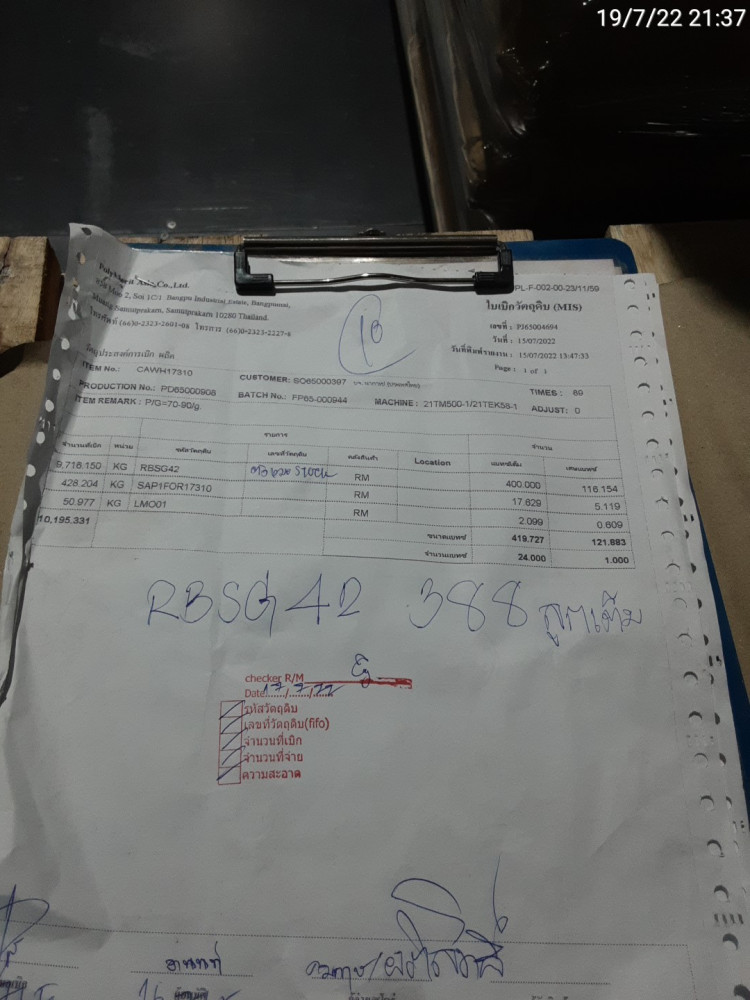 19/7/22 21:37
Co.,Ltd.
PL-F-002-00-23/11/59
Bangpu Industrial Estate, Bangpumai,
Samutprakarn 10280 Thailand.
(6630-2323-2601-08 โทรสาร (66)0-2323-2227-8
ใบเบิกวัตถุดิบ (MIS)
เลขที่ : PJ65004694
วันที่ : 15/07/2022
วันที่พิมพ์รายงาน : 15/07/2022 13:47:33
Page : 1 of 1
วัตถุประสงค์การเบิก ผลิต
ITEM No.: CAWH17310
CUSTOMER: SO65000397
PRODUCTION No.: PD65000908
BATCH No.: FP65-000944
MACHINE : 21TM500-1/21TEK58-1
TIMES : 80
ITEM REMARK : P/G=70-90/g.
ADJUST: 0
รายการ จำนวน
จำนวนที่เบิก หน่วย รหัสวัตถุดิบ เลขที่วัตถุดิบ คลังสินค้า Location แบทช์เต็ม เศษแบทช์
9,716.150 KG RBSG42 RM 400.000 116.154
428.204 KG SAP1FOR17310 RM 17.629 5.119
50.977 KG LMO01 RM 2.099 0.609
10,195.331 ขนาดแบทช์ 419.727 121.883
จำนวนแบทช์ 24.000 1.000
RBSG42 388 ลูกเต็ม
checker R/M
Date 17/7/22
รหัสวัตถุดิบ
เลขที่วัตถุดิบ(fifo)
จำนวนที่เบิก
จำนวนที่จ่าย
ความสะอาด
อานนท์